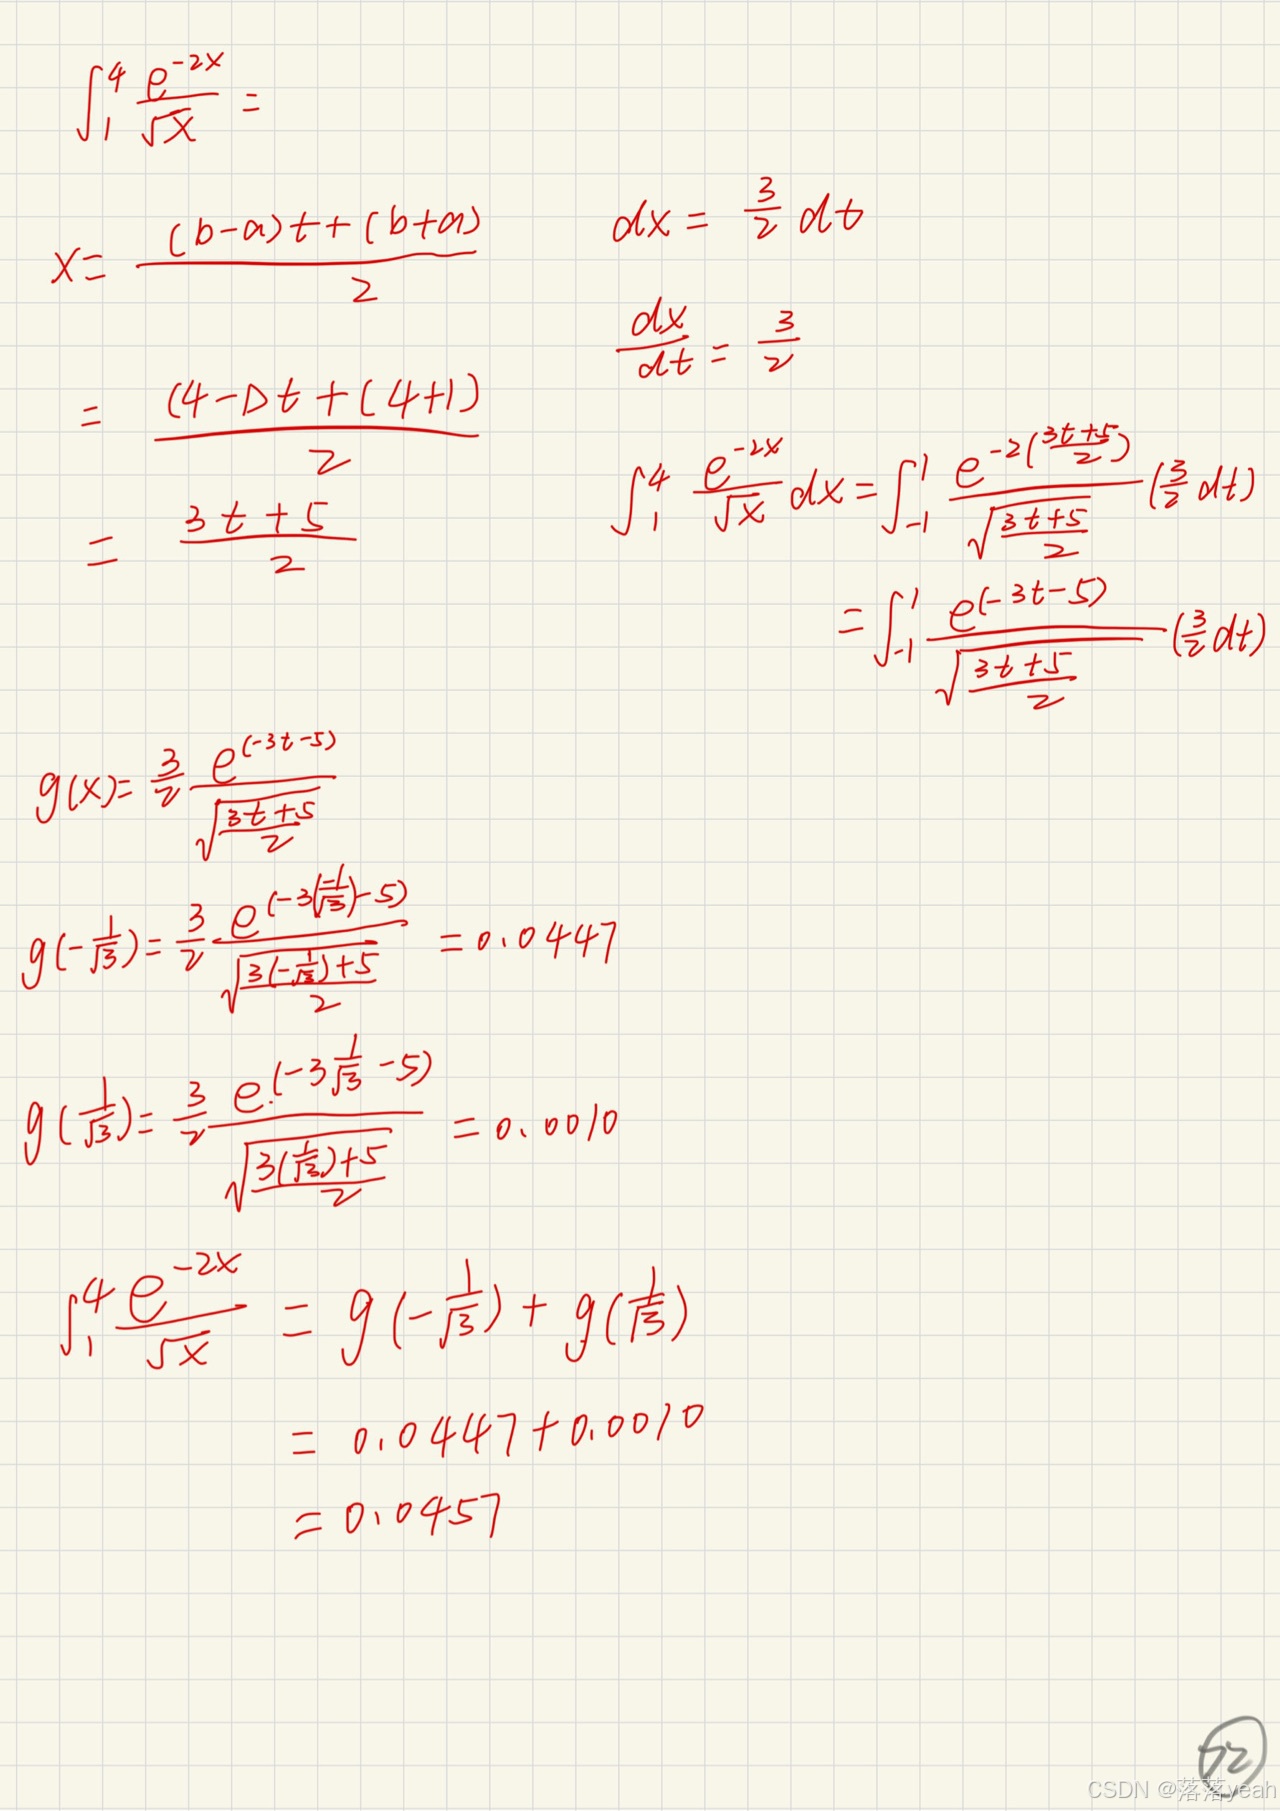 ∫₁⁴ e^(-2x)/√x =
x = ((b-a)t+(b+a))/2
= ((4-1)t+(4+1))/2
= (3t+5)/2
dx = 3/2 dt
dx/dt = 3/2
∫₁⁴ e^(-2x)/√x dx = ∫₋₁¹ e^(-2((3t+5)/2))/√((3t+5)/2) (3/2 dt)
= ∫₋₁¹ e^(-3t-5)/√((3t+5)/2) (3/2 dt)
g(x) = 3/2 e^(-3t-5)/√((3t+5)/2)
g(-1/√3) = 3/2 e^(-3(-1/√3)-5)/√((3(-1/√3)+5)/2) = 0.0447
g(1/√3) = 3/2 e^(-3 1/√3 -5)/√((3(1/√3)+5)/2) = 0.0010
∫₁⁴ e^(-2x)/√x = g(-1/√3) + g(1/√3)
= 0.0447+0.0010
= 0.0457
CSDN @落落yeah